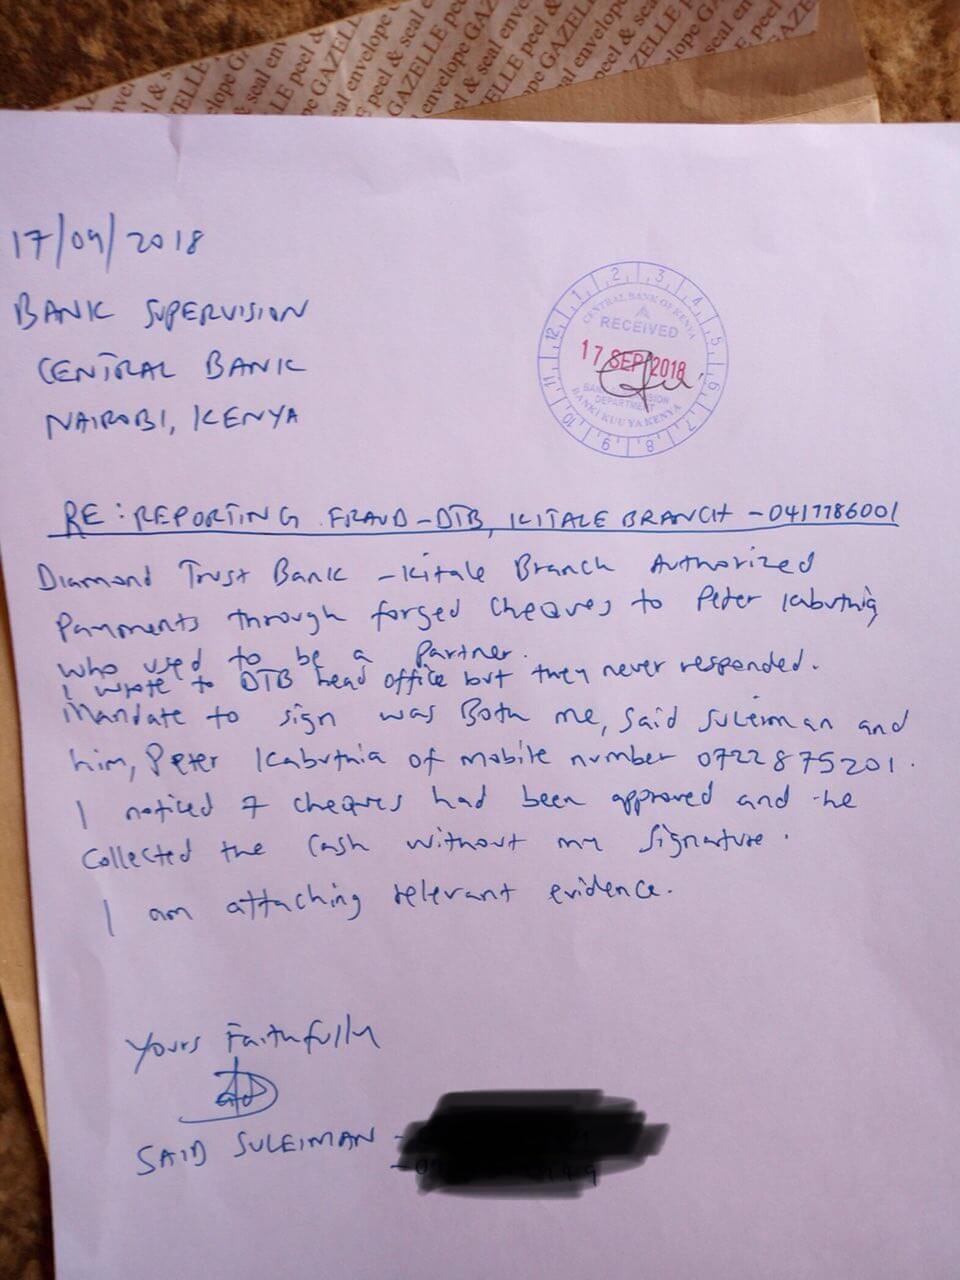 envelope GAZELLE peel & seal envelope
17/09/2018
BANK SUPERVISION
CENTRAL BANK
NAIROBI, KENYA
CENTRAL BANK OF KENYA
RECEIVED
17 SEP 2018
DEPARTMENT
BANKI KUU YA KENYA
1 2 3 4 5 6 7 8 9 10 11 12
RE: REPORTING FRAUD - DTB, KITALE BRANCH - 0417786001
Diamond Trust Bank - Kitale Branch Authorized
Payments through forged cheques to Peter Kabuthia
who used to be a partner.
I wrote to DTB head office but they never responded.
Mandate to sign was Both me, Said Suleiman and
him, Peter Kabuthia of mobile number 0722875201.
I noticed 7 cheques had been approved and he
collected the cash without my signature.
I am attaching relevant evidence.
Yours Faithfully
SAID SULEIMAN -